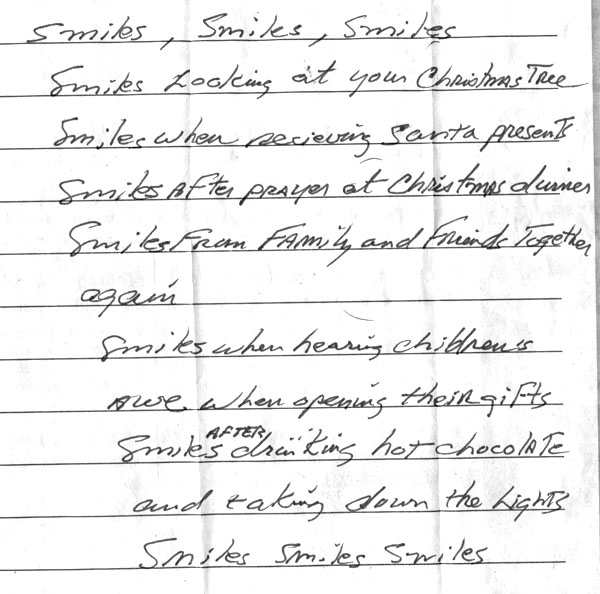 Smiles, Smiles, Smiles
Smiles Looking at your Christmas Tree
Smiles when recieving Santa presents
Smiles After prayer at Christmas dinner
Smiles From Family and Friends Together
again
Smiles when hearing children's
awe when opening their gifts
Smiles AFTER drinking hot chocolate
and taking down the Lights
Smiles Smiles Smiles